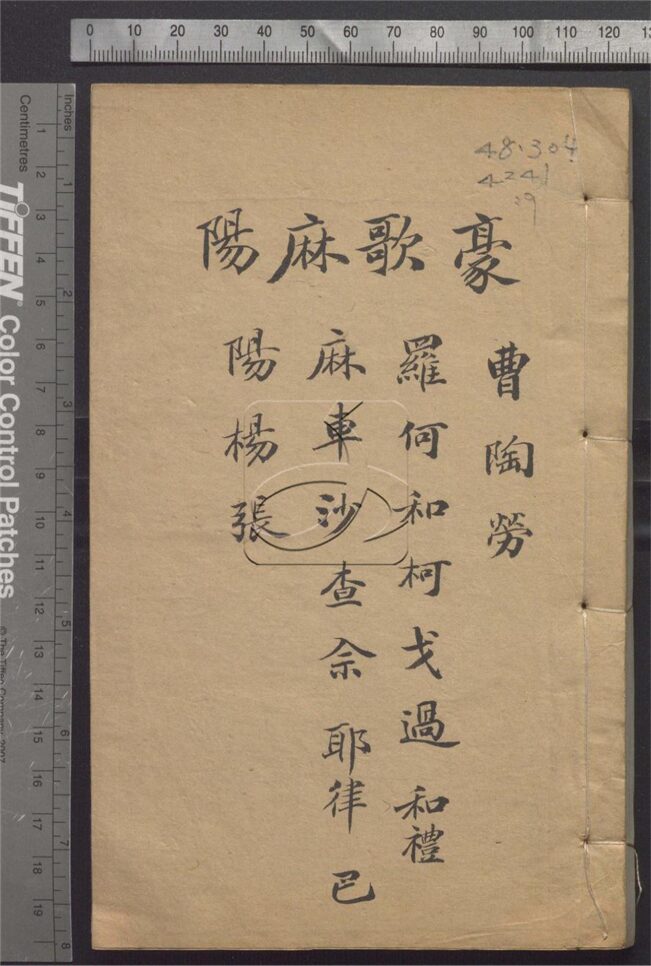 0 10 20 30 40 50 60 70 80 90 100 110 120
48.304
4241
:9
豪歌麻陽
曹陶勞
羅何和柯戈過和禮
麻車沙查佘耶律巴
陽楊張
Inches
Centimetres
1 2 3 4 5 6 7 8
1 2 3 4 5 6 7 8 9 10 11 12 13 14 15 16 17 18 19
TIFFEN® Color Control Patches
© The Tiffen Company, 2007